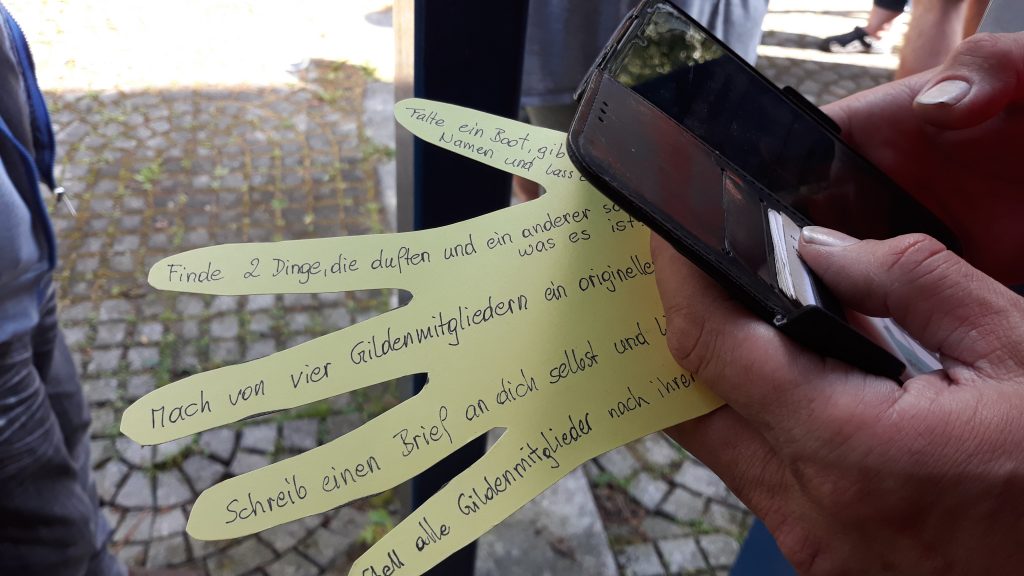 Falte ein Boot, gib
Namen und lass
Finde 2 Dinge, die duften und ein anderer
was es ist.
Mach von vier Gildenmitgliedern ein originelle
Schreib einen Brief an dich selbst und
Stell alle Gildenmitglieder nach ihren